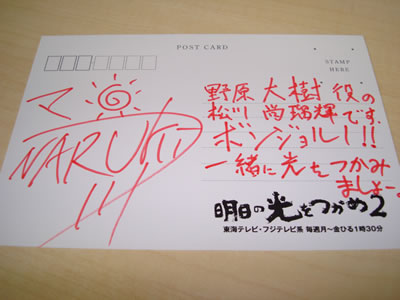 POST CARD
STAMP
HERE
マ
NARUKI
野原 大樹 役の
松川 尚瑠輝 です.
ボンジョルー!!
一緒に光をつかみ
ましょー。
明日の光をつかめ2
東海テレビ・フジテレビ系 毎週月〜金ひる1時30分